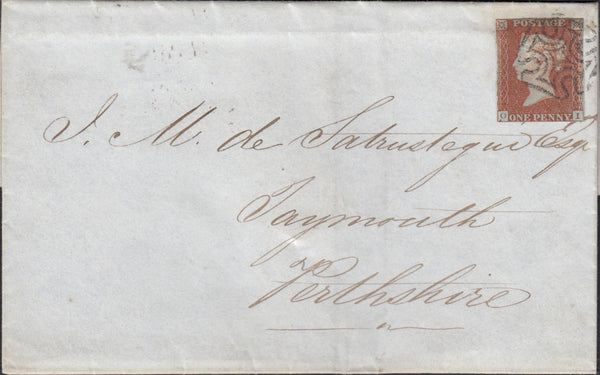 POSTAGE
ONE PENNY
J. M. de Satrustegui Esqr
Taymouth
Perthshire